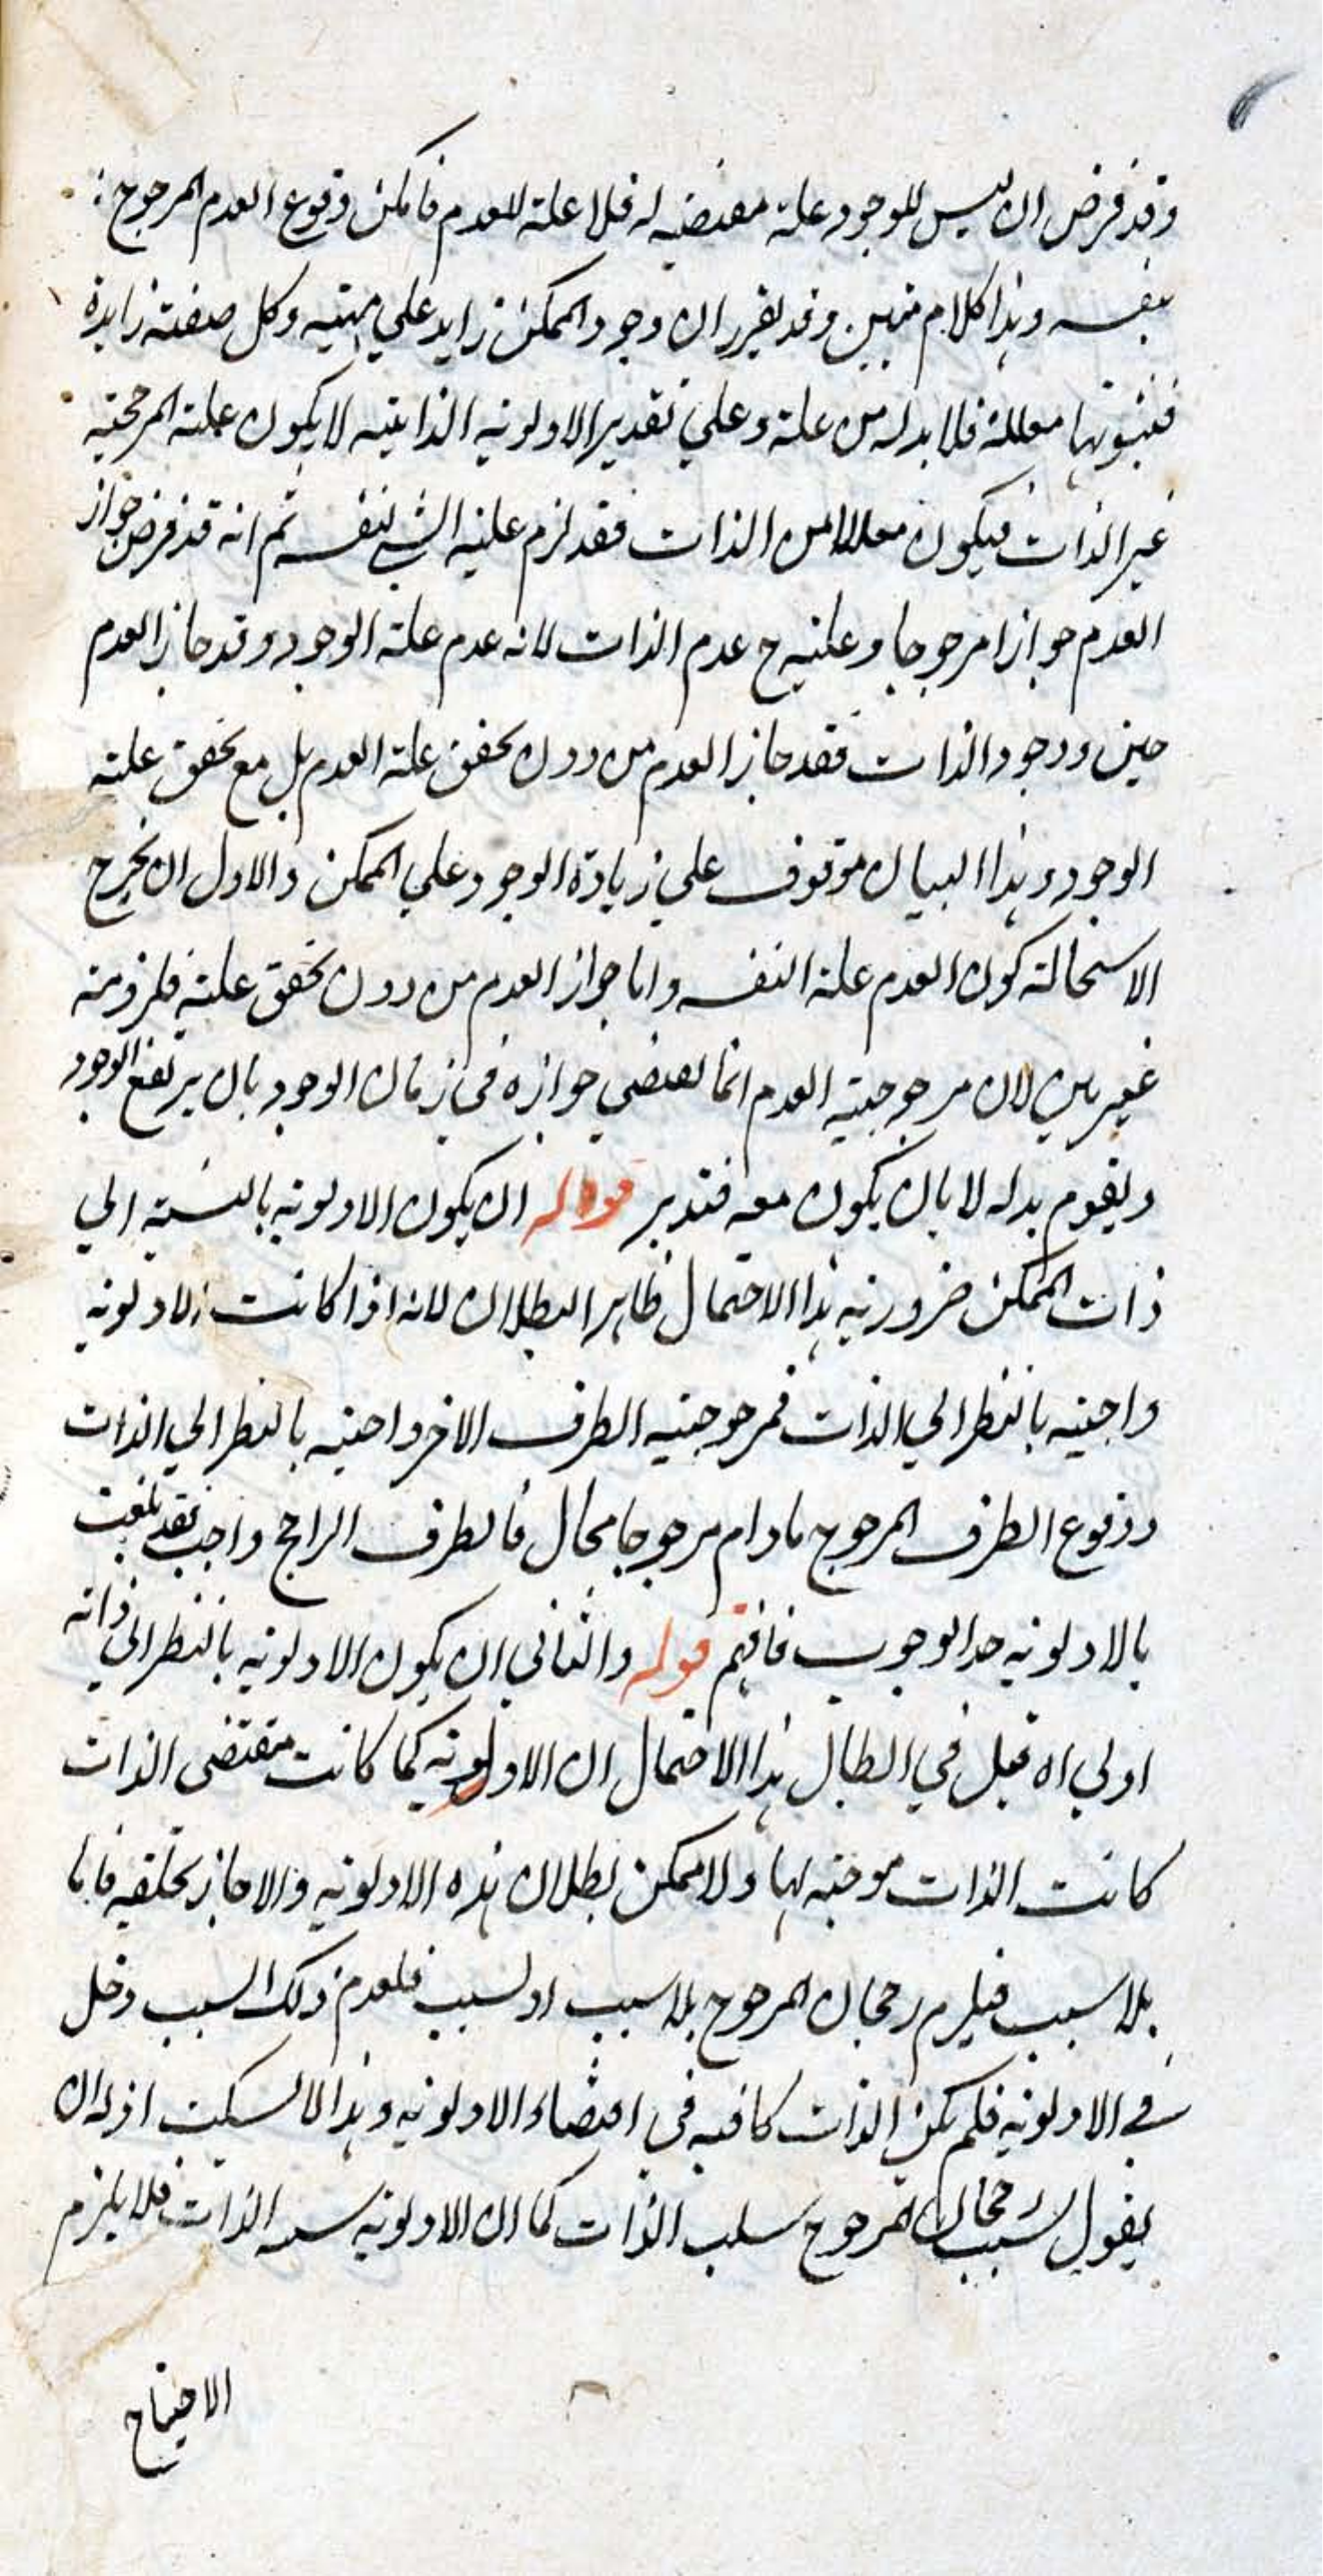 وقد فرض ان ليس للوجود علة مقتضيه له فلا علة للعدم فامكن وقوع العدم المرجوح
بنفسه وهذا كلام متين وقد تقرر ان وجود الممكن زايد علي مهيته وكل صفته زايدة
فثبوتها معللة فلا بد له من علة وعلي تقدير الاولويه الذاتيه لا يكون علته المرجحة
غير الذات فيكون معللا من الذات فقد لزم علية الشي لنفسه ثم انه قد فرض جواز
العدم جوازا مرجوحا وعليته ح عدم الذات لانه عدم علة الوجود وقد جاز العدم
حين وجود الذات فقد جاز العدم من دون تحقق علة العدم بل مع تحقق علية
الوجود وهذا البيان موقوف علي زيادة الوجود علي الممكن والاول ان يخرج
الاستحالة كون العدم علة النفسه واما جواز العدم من دون تحقق علية فلزومه
غير بين لان مرجوحية العدم انما تقتضي جوازه في زمان الوجود بان يرتفع الوجود
ويقوم بدله لا بان يكون معه فتدبر قوله ان يكون الاولويه بالنسبة الي
ذات الممكن ضروريه هذا الاحتمال ظاهر البطلان لانه اذا كانت الاولويه
واجبيه بالنظر الي الذات فمرجوحيه الطرف الاخر واجبيه بالنظر الي الذات
ووقوع الطرف المرجوح مادام مرجوحا محال فالطرف الراجح واجب فقد بلغت
بالاولويه حد الوجوب فافهم قوله والثاني ان يكون الاولويه بالنظر الي ذاته
اولي اه قيل في ابطال هذا الاحتمال ان الاولويه كما كانت مقتضى الذات
كانت الذات موجبه لها ولا يمكن بطلان هذه الاولويه والا جاز تخلفه فاما
بلا سبب فيلزم رجحان المرجوح بلا سبب او لسبب فلعدم ذلك السبب دخل
في الاولويه فلم يكن الذات كافيه في اقتضاء الاولويه وهذا لا يسكت اذ له ان
يقول سبب رجحان المرجوح سلب الذات كما ان الاولويه الذات فلا يلزم
الاحتياج